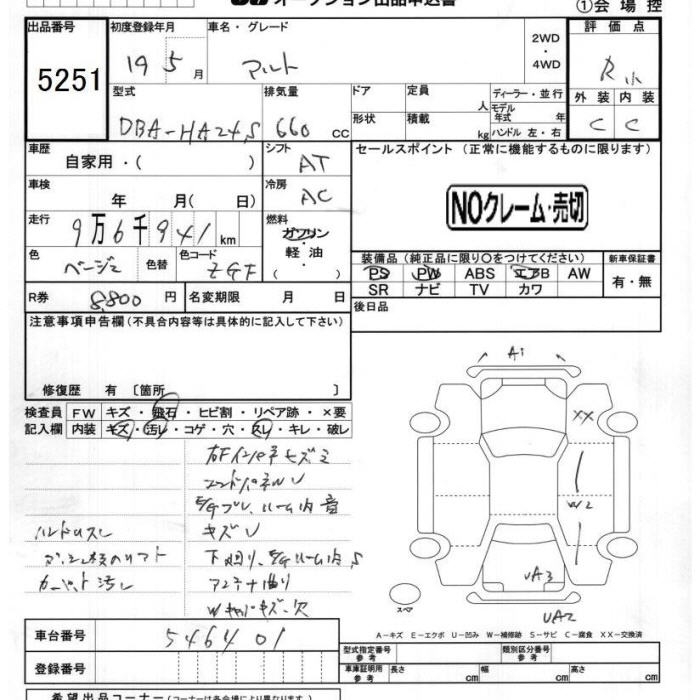 オークション出品申込書
①会場控
出品番号 初度登録年月 車名・グレード 評価点
5251 19 5月 アルト 2WD・4WD R小
外装 内装
C C
型式 排気量 ドア 定員 人 ディーラー・並行
DBA-HA24S 660cc 形状 積載 kg モデル年式 年 ハンドル 左・右
車歴 自家用・( ) シフト AT
セールスポイント (正常に機能するものに限ります)
車検 年 月( 日) 冷房 AC
NOクレーム・売切
走行 9万6千941km 燃料 ガソリン・軽油 ( )
色 ベージュ 色替 色コード ZGF
装備品 (純正品に限り○をつけてください) 新車保証書
PS PW ABS エアB AW 有・無
SR ナビ TV カワ
R券 8,800円 名変期限 月 日
後日品
注意事項申告欄(不具合内容等は具体的に記入して下さい)
修復歴 有〔箇所 〕
検査員 FW キズ・飛石・ヒビ割・リペア跡・×要
記入欄 内装 キズ・汚レ・コゲ・穴・スレ・キレ・破レ
A1
XX
W2
UA3
UA2
スペア
ハンドルスレ
カーペット汚レ
キズU
下廻り、E/Gルーム内S
アンテナ曲り
A−キズ E−エクボ U−凹み W−補修跡 S−サビ C−腐食 XX−交換済
車台番号 546401
登録番号
型式指定番号 参考 類別区分番号 参考
車庫証明用 参考 長さ cm 幅 cm 高さ cm
希望出品コーナー(コーナーは各会場により異なります。)